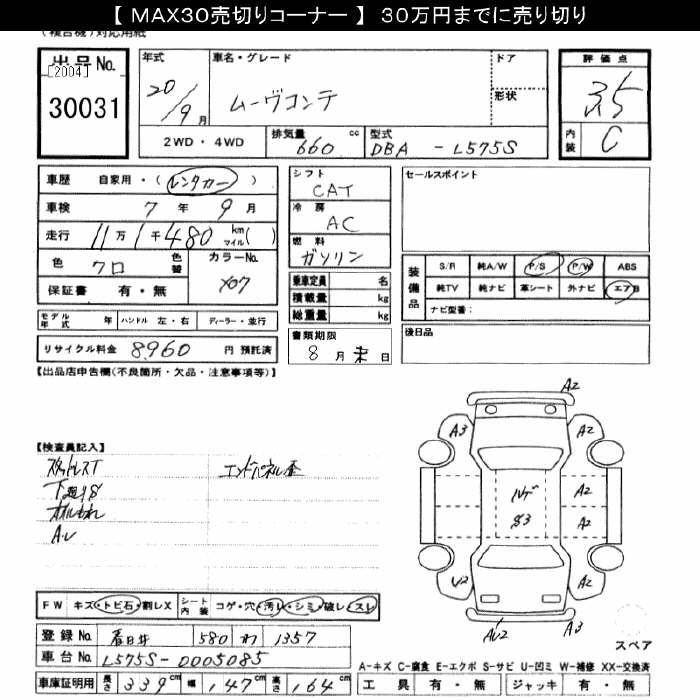 【 MAX30売切りコーナー 】 30万円までに売り切り
(複合機)対応用紙
出品No.
[2004]
30031
年式 20/9月
車名・グレード ムーヴコンテ
ドア
形状
評価点 3.5
内装 C
2WD・4WD 排気量 660 cc 型式 DBA - L575S
車歴 自家用・(レンタカー)
車検 7年 9月
走行 11万1千480 km マイル( )
色 クロ 色替 カラーNo. X07
保証書 有・無
モデル年式 年 ハンドル 左・右 ディーラー・並行
リサイクル料金 8960 円 預託済
シフト CAT
冷房 AC
燃料 ガソリン
乗車定員 名
積載量 kg
総重量 kg
書類期限 8月末日
セールスポイント
装備品
S/R 純A/W P/S P/W ABS
純TV 純ナビ 革シート 外ナビ エアB
ナビ型番:
後日品
【出品店申告欄(不良箇所・欠品・注意事項等)】
【検査員記入】
スタットレスT
下廻りS
オイルもれ
エンドパネル歪
A2
A3
A2
A2
A2
ルーフ
S3
U2
A2
AU2
A3
スペア
FW キズ・トビ石・割レX シート内装 コゲ・穴・汚レ・シミ・破レ・スレ
登録No. 春日井 580 わ 1357
車台No. L575S-0005085
車庫証明用 長さ 339cm 幅 147cm 高さ 164cm
A-キズ C-腐食 E-エクボ S-サビ U-凹ミ W-補修 XX-交換済
工具 有・無 ジャッキ 有・無